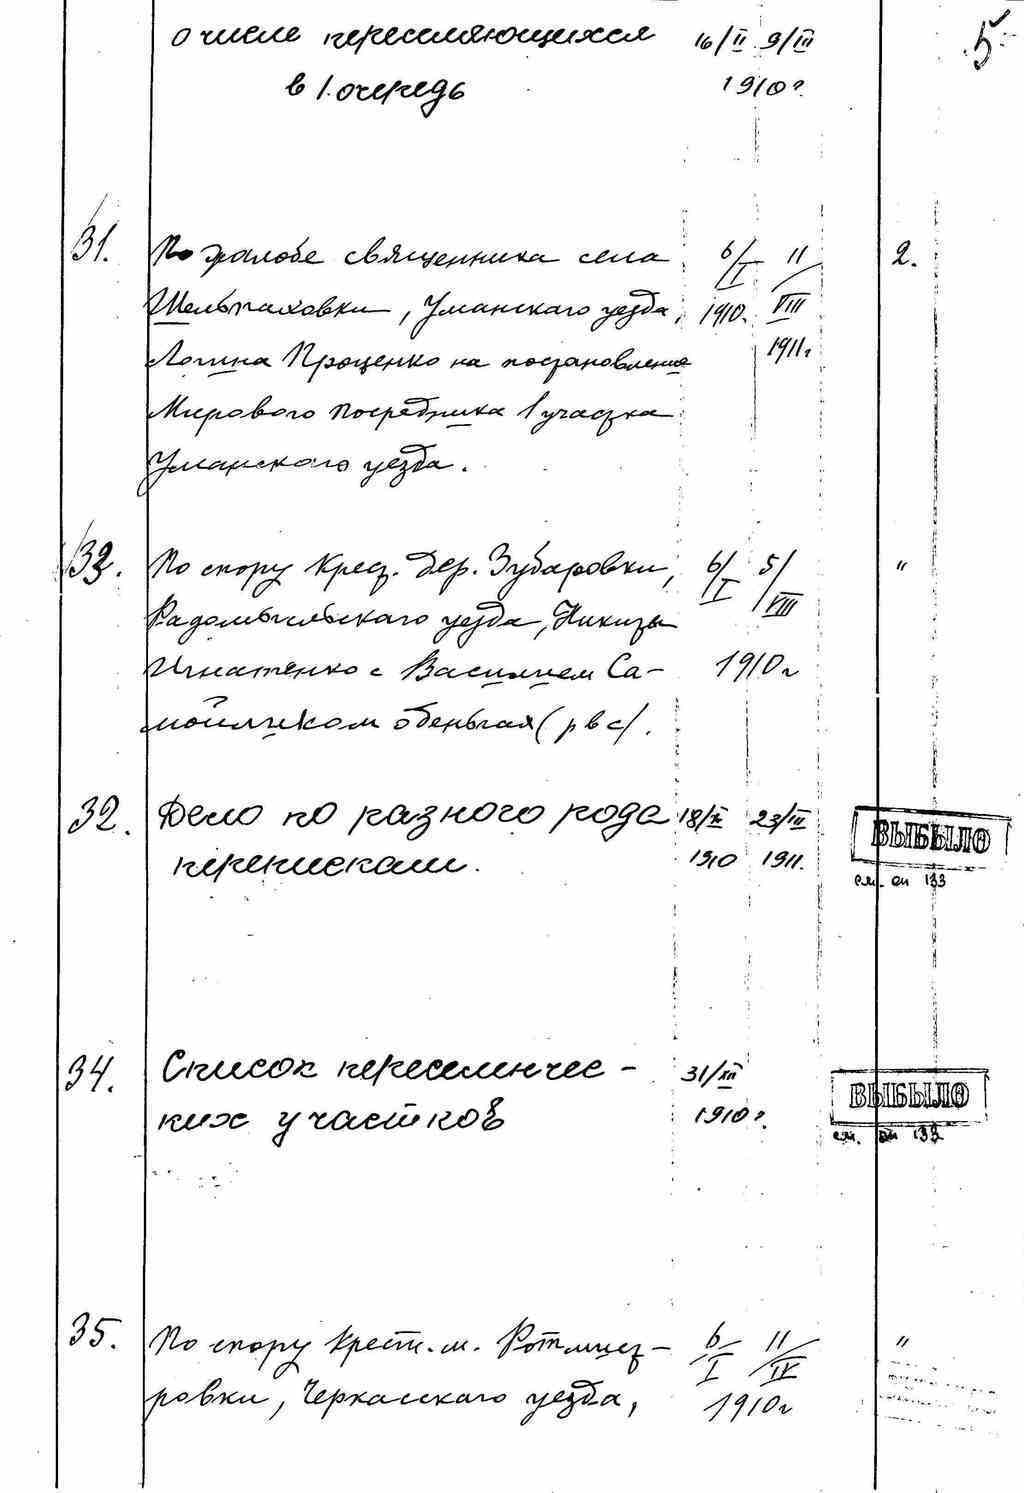 5.
о числе переселяющихся 16/II 9/III
в 1. очередь 1910 г.
31. По жалобе священника села 6/I 11/VIII 2.
Шельпаховки, Уманскаго уезда, 1910. 1911 г
Логина Проценко на постановление
Мирового Посредника 1 участка
Уманского уезда.
33. По спору Крест. дер. Зубаровки, 6/I 5/VIII "
Радомысльскаго уезда, Никиты
Игнатенко с Василием Са- 1910 г
мойликом
32. Дело по разного рода 18/II 23/III ВЫБЫЛО
перепискам. 1910 1911. см. оп 133
34. Список переселенчес- 31/XII ВЫБЫЛО
ких участков 1910 г. см. оп 133
35. По спору Крест. м. Ротмист- 6/I 11/IV "
ровки, Черкасскаго уезда, 1910 г